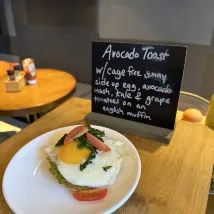 Avocado Toast
w/ cage free sunny
side up egg, avocado
mash, kale & grape
tomatoes on an
english muffin